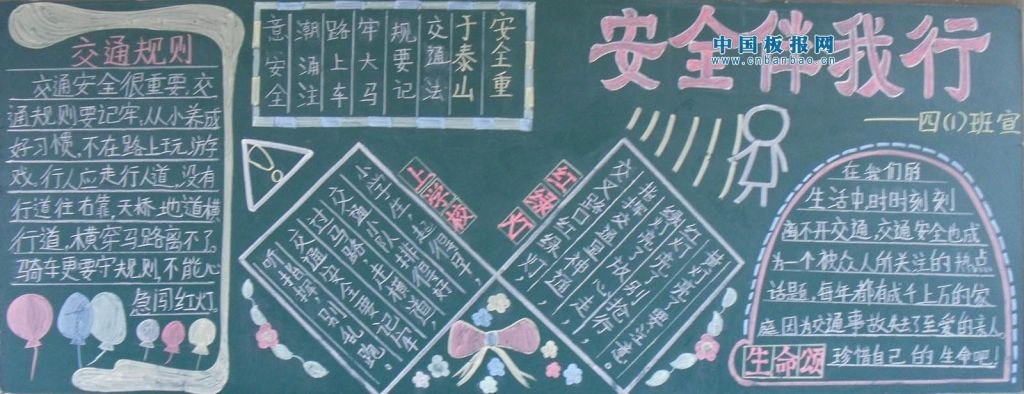 交通规则
交通安全很重要,交
通规则要记牢,从小养成
好习惯,不在路上玩游
戏。行人应走行人道,没有
行道往右靠,天桥、地道横
行道,横穿马路离不了。
骑车更要守规则,不能心
急闯红灯。
安全重
于泰山
交通法
规要记
牢大马
路上车
潮涌注
意安全
安全伴我行
中国板报网
www.cnbanbao.cn
——四(1)班宣
上学校
小学生,起得早
交通小队排得好
过马路,走横道,
交通安全要记牢
听指挥,别乱跑。
红绿灯
交叉路口红绿灯,
指挥交通显神通,
绿灯亮了放心走,
红灯亮了别抢行,
黄灯亮了要注意。
在我们的
生活中时时刻刻
离不开交通,交通安全也成
为一个被众人所关注的热点
话题,每年都有成千上万的家
庭因为交通事故失去了至爱的亲人。
生命颂
珍惜自己的生命吧!